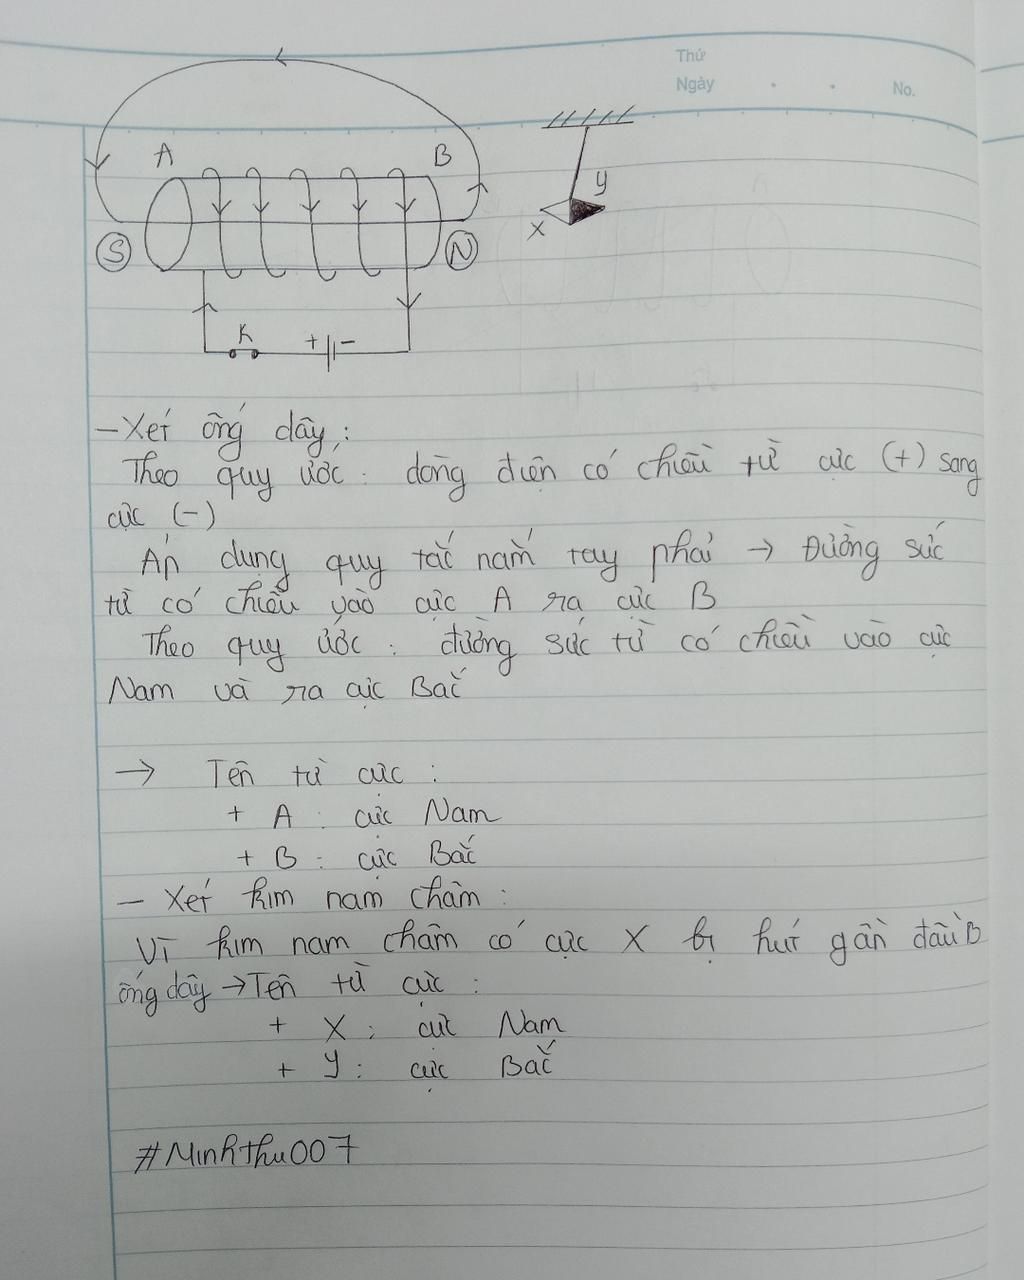 Thứ
Ngày . . No.
A B
y
X
S N
K + -
- Xét ống dây :
Theo quy ước : dòng điện có chiều từ cực (+) sang
cực (-)
Áp dụng quy tắc nắm tay phải → Đường sức
từ có chiều vào cực A ra cực B
Theo quy ước : đường sức từ có chiều vào cực
Nam và ra cực Bắc
→ Tên từ cực :
+ A : cực Nam
+ B : cực Bắc
- Xét kim nam châm :
Vì kim nam châm có cực X bị hút gần đầu B
ống dây → Tên từ cực :
+ X : cực Nam
+ Y : cực Bắc
#Minhthu007